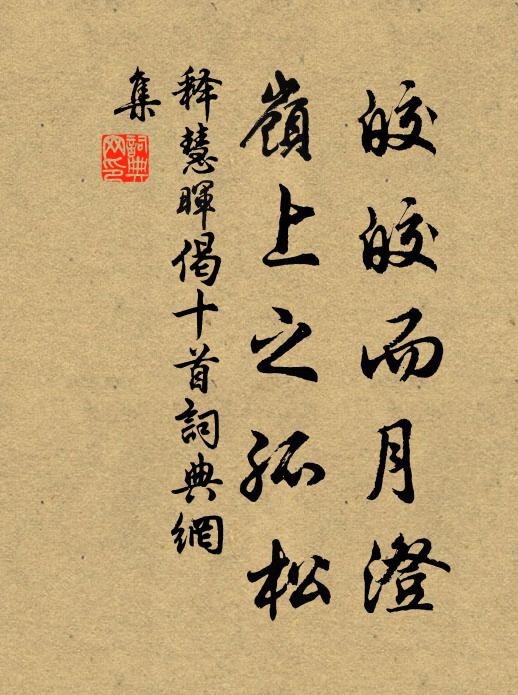 皎皎而月澄
嶺上之孤松
释慧暉偈十首詞典網
集
詞典
网印